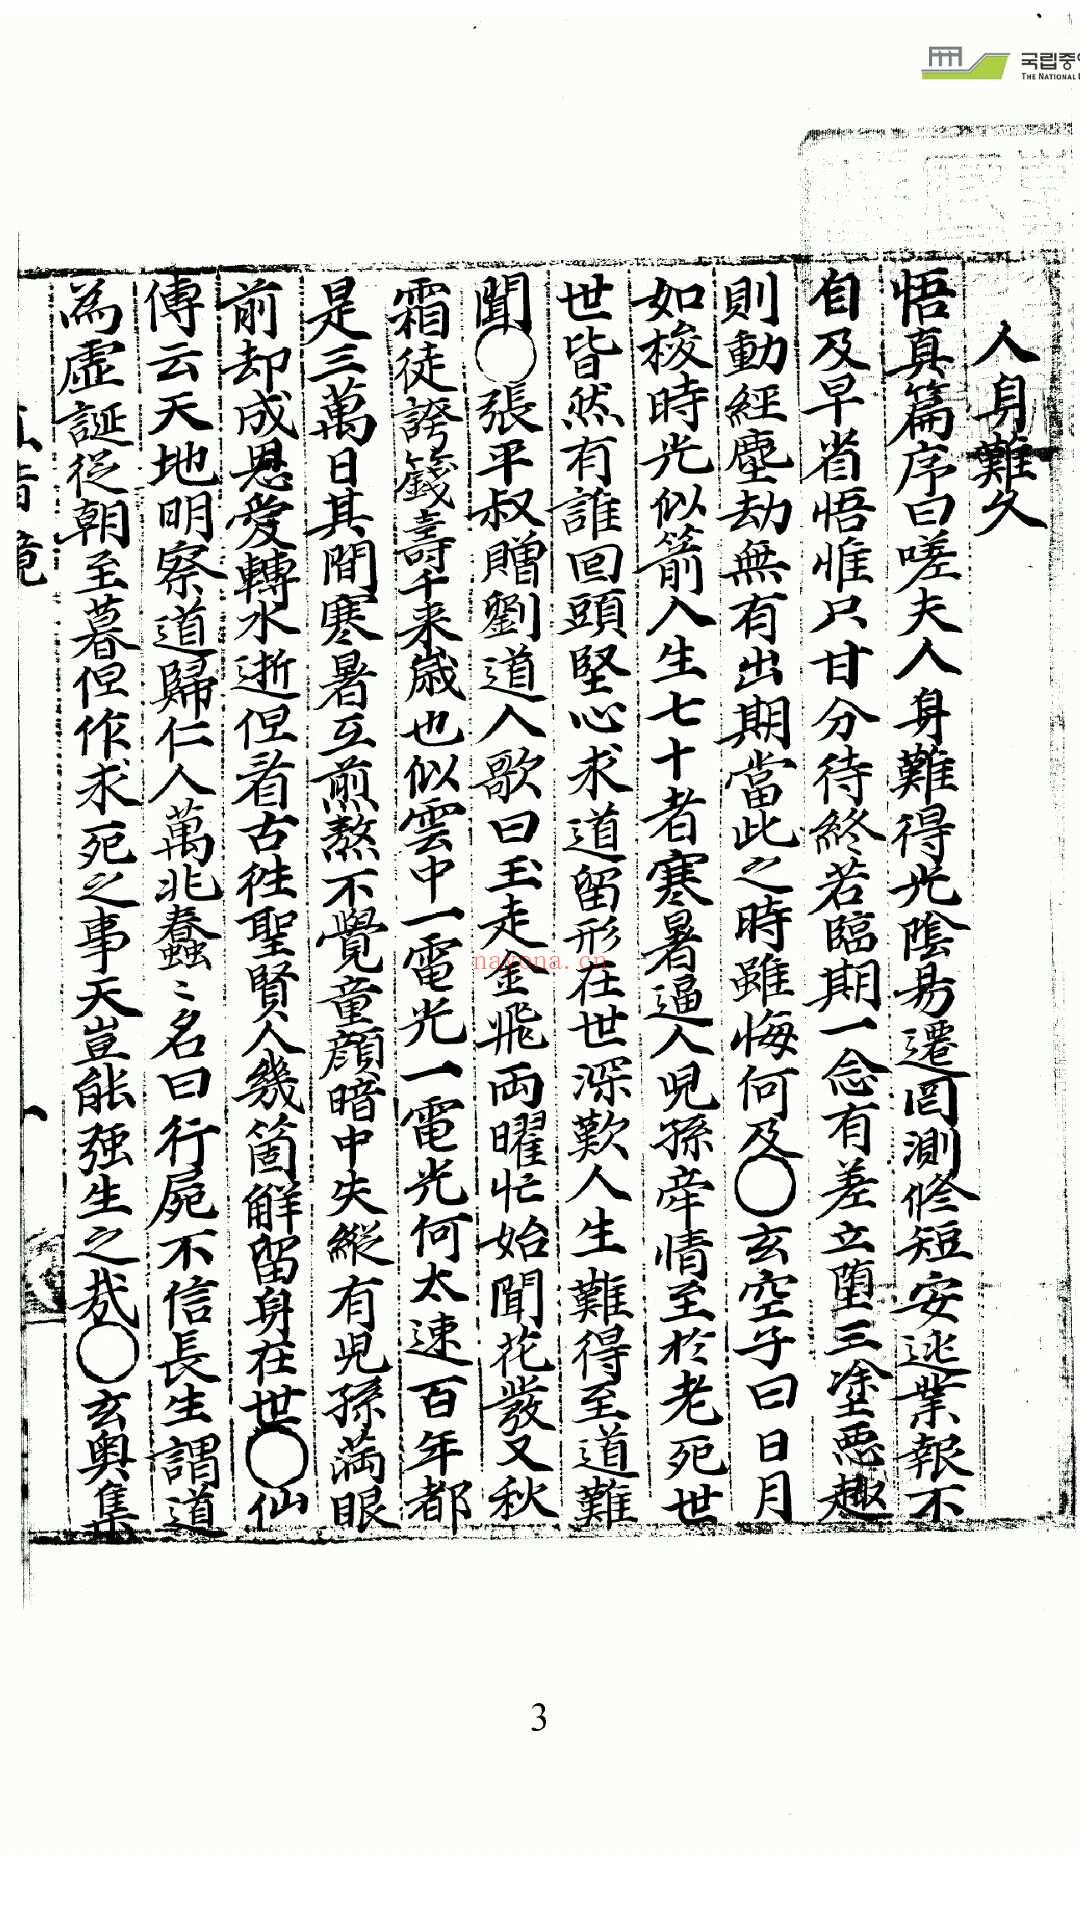 국립중앙
THE NATIONAL L
人身難久
悟真篇序曰嗟夫人身難得光陰易遷罔測修短安逃業報不
自及早省悟惟只甘分待終若臨期一念有差立墮三塗惡趣
則動經塵劫無有出期當此之時雖悔何及○玄空子曰日月
如梭時光似箭人生七十者寒暑逼人兒孫牽情至於老死世
世皆然有誰回頭堅心求道留形在世深歎人生難得至道難
聞○張平叔贈劉道人歌曰玉走金飛兩曜忙始聞花發又秋
霜徒誇籛壽千来歲也似雲中一電光一電光何太速百年都
是三萬日其間寒暑互煎熬不覺童顏暗中失縱有兒孫滿眼
前却成恩愛轉水逝但看古徃聖賢人幾箇解留身在世○仙
傳云天地明察道歸仁人萬兆蠢〻名曰行屍不信長生謂道
為虛誕從朝至暮但作求死之事天豈能强生之㢤○玄奥集
nayona.cn
3